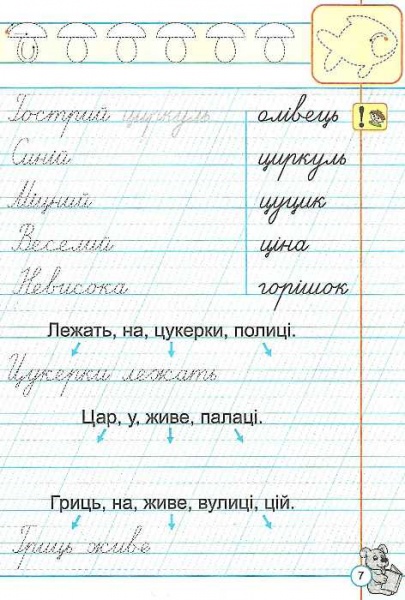 Гострий циркуль олівець !
Синій циркуль
Міцний цуцик
Веселий ціна
Невисока горішок
Лежать, на, цукерки, полиці.
Цукерки лежать
Цар, у, живе, палаці.
Гриць, на, живе, вулиці, цій.
Гриць живе
7